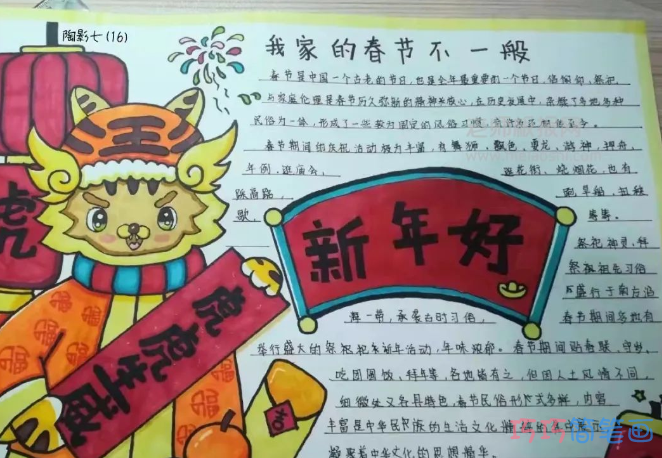 陶影七(16)
我家的春节不一般
春节是中国一个古老的节日,也是全年最重要的一个节日,
与家庭伦理是春节历久弥新的精神核心,在历史发展中,杂糅了多地多种
民俗为一体,形成了一些较为固定的风俗习惯,
春节期间的庆祝活动极为丰富,有舞狮、飘色、舞龙、游神、押舟、
年例、逛庙会、
逛花街、烧烟花、也有
踩高跷、
割旱船、扭秧
歌、
等等。
祭祝神灵、拜
祭报祖先习俗
盛行于南方沿
新年好
一带,承袭古时习俗,
春节期间各地有
举行盛大的祭祝祈年活动,年味浓郁。春节期间贴春联、守岁、
吃团圆饭、拜年等,各地皆有之,但因人土风情不同,
细微处又各具特色。春节民俗形式多样、内容
丰富是中华民族的生活文化精粹的集中展示
凝聚着中华文化的思想精华。
虎
虎虎生威
福
巧巧简笔画